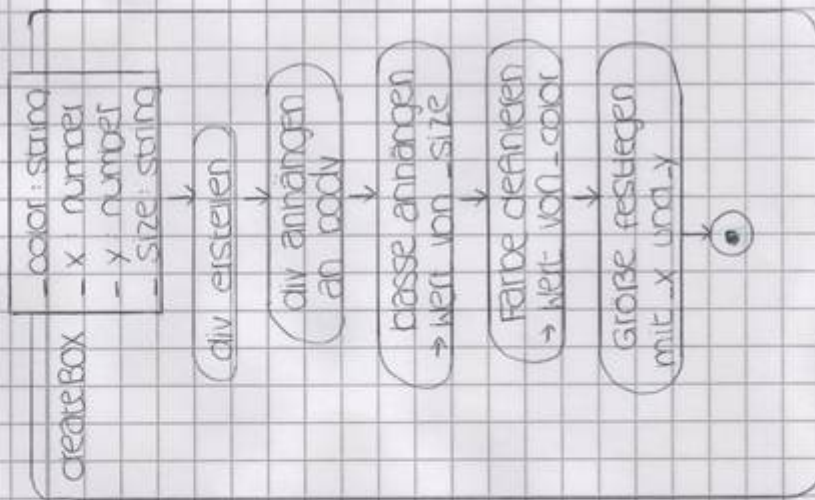 createBox
_color: string
_x: number
_y: number
_size: string
div erstellen
div anhängen
an body
classe anhängen
→ Wert von _size
Farbe definieren
→ Wert von _color
Größe festlegen
mit _x und _y